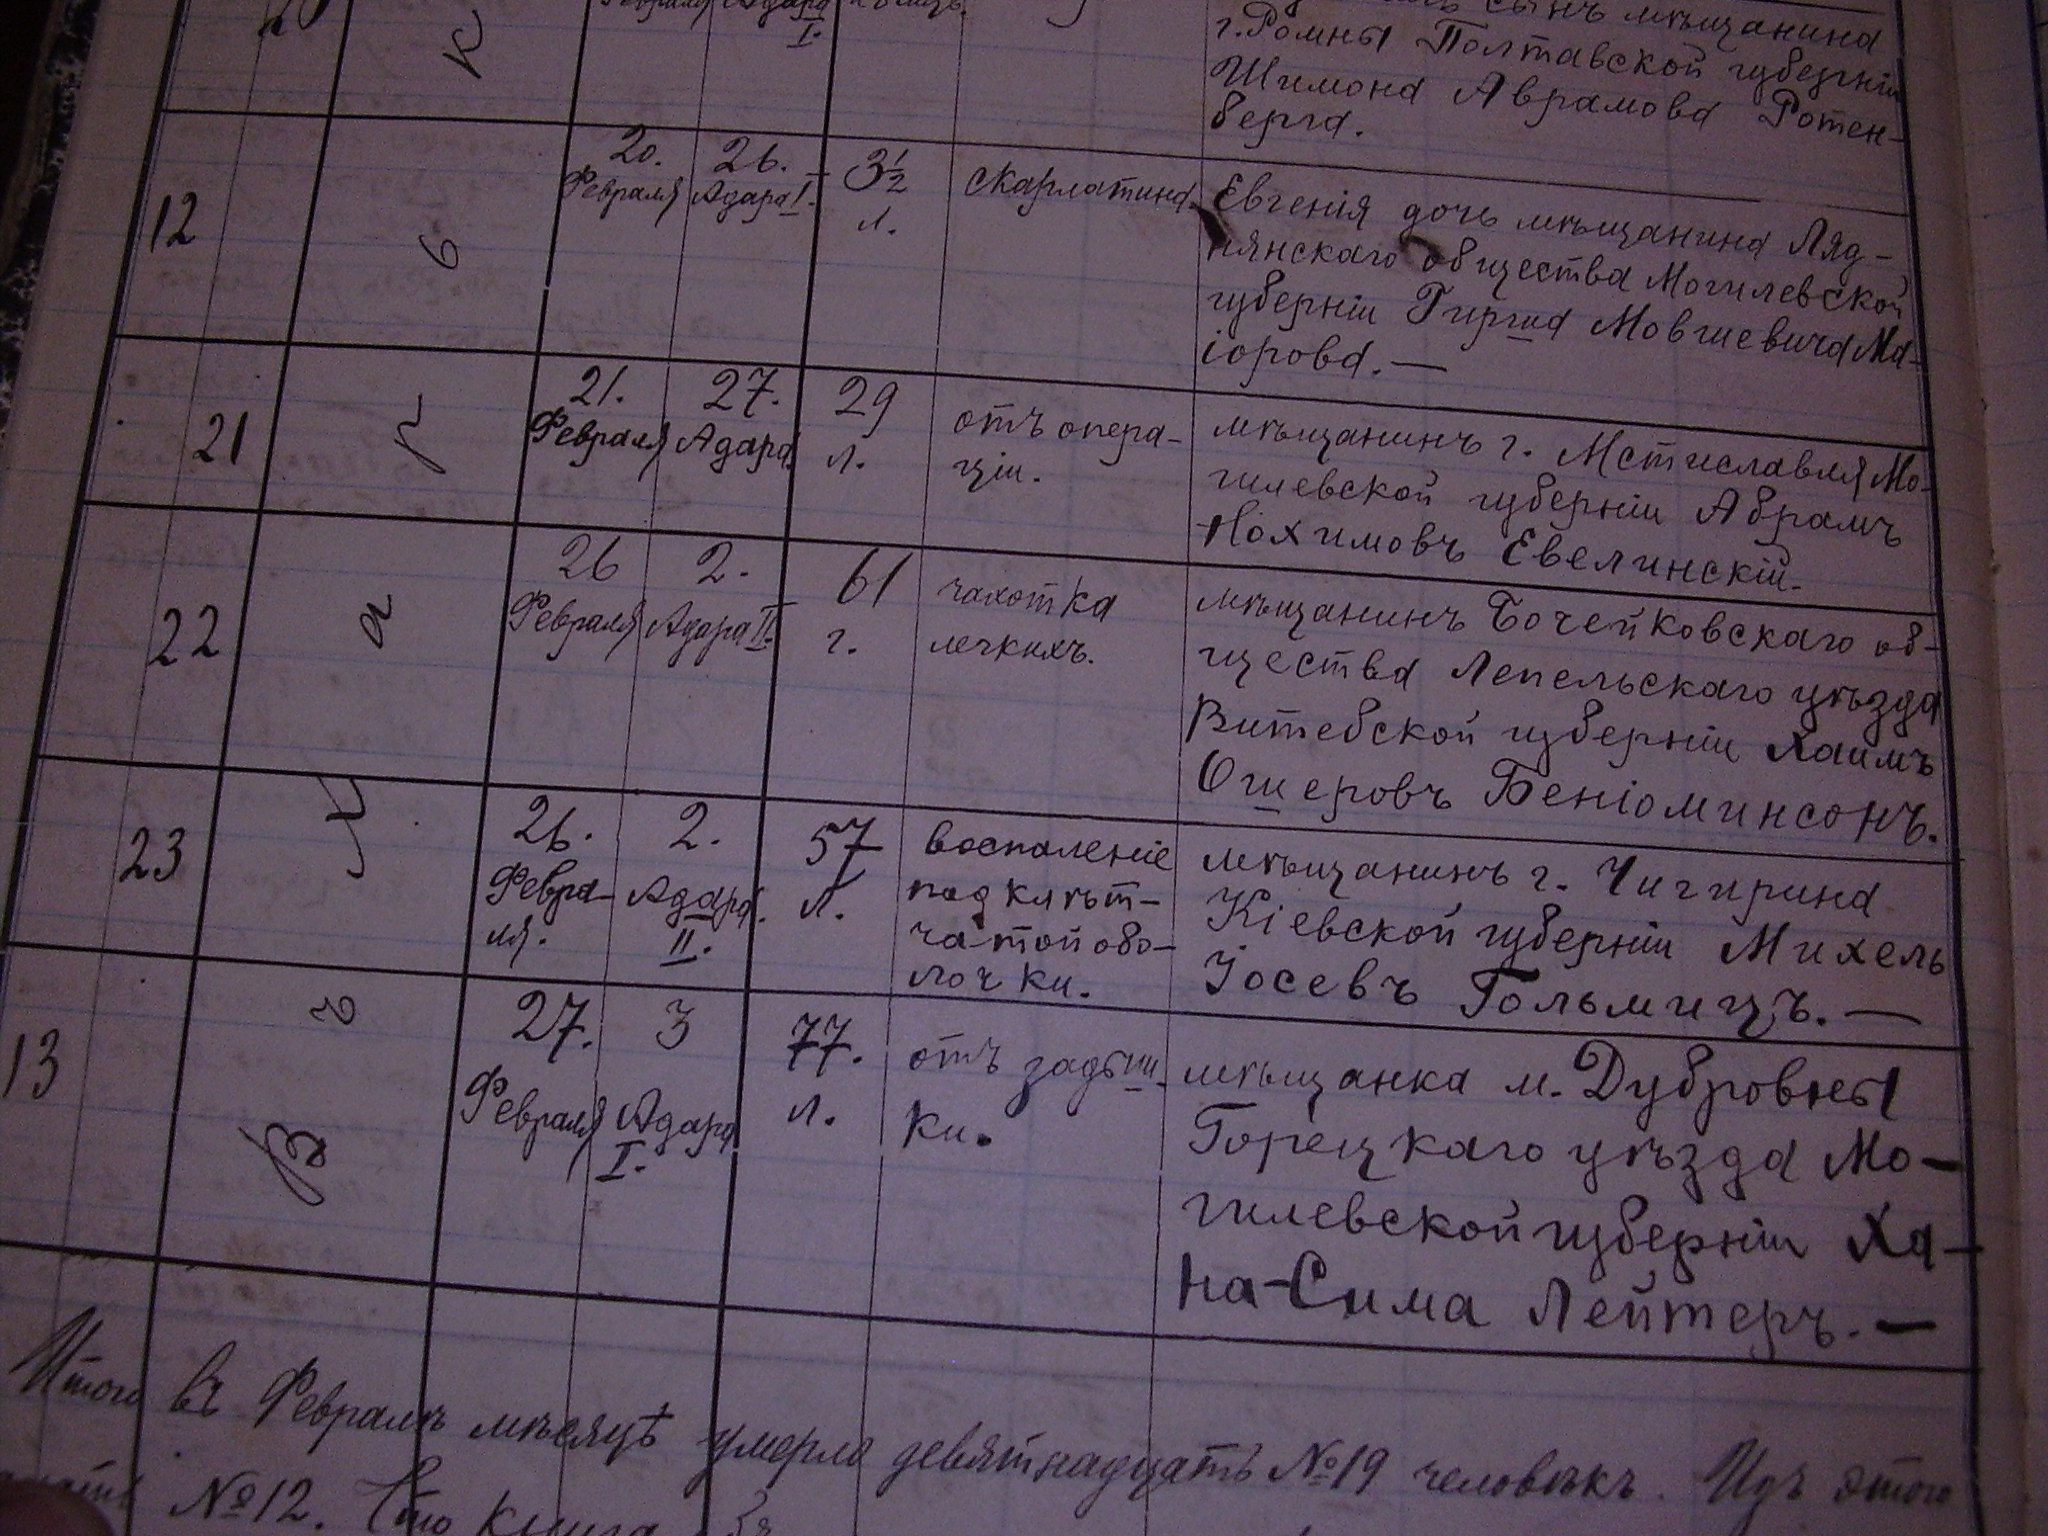 20
Февраля Адара
I.
сынъ мѣщанина
г. Ромны Полтавской губерніи
Шимона Аврамова Ротен-
берга.
к
12
в
20. Февраля
26. Адара I.
3½ л.
скарлатина.
Евгенія дочь мѣщанина Ляд-
нянскаго общества Могилевской
губерніи Гирша Мовшевича Ма-
іорова. —
21
р
21. Февраля
27. Адара
29 л.
отъ опера-
ціи.
мѣщанинъ г. Мстиславля Мо-
гилевской губерніи Абрамъ
Нохимовъ Евелинскій.
22
а
26 Февраля
2. Адара II.
61 г.
чахотка
легкихъ.
мѣщанинъ Бочейковскаго об-
щества Лепельскаго уѣзда
Витебской губерніи Хаимъ
Ошеровъ Беніоминсонъ.
23
26. Февра-
ля.
2. Адара
II.
57 л.
воспаленіе
подклѣт-
чатой обо-
лочки.
мѣщанинъ г. Чигирина
Кіевской губерніи Михель
Іосевъ Гольмицъ. —
13
ч
В
27. Февраля
3 Адара
I.
77. л.
отъ задыш-
ки.
мѣщанка м. Дубровны
Горецкаго уѣзда Мо-
гилевской губерніи Ха-
на-Сима Лейтеръ. —
Итого въ Февралѣ мѣсяцѣ умерло девятнадцать №19 человѣкъ. Изъ этого
№12. Что книга